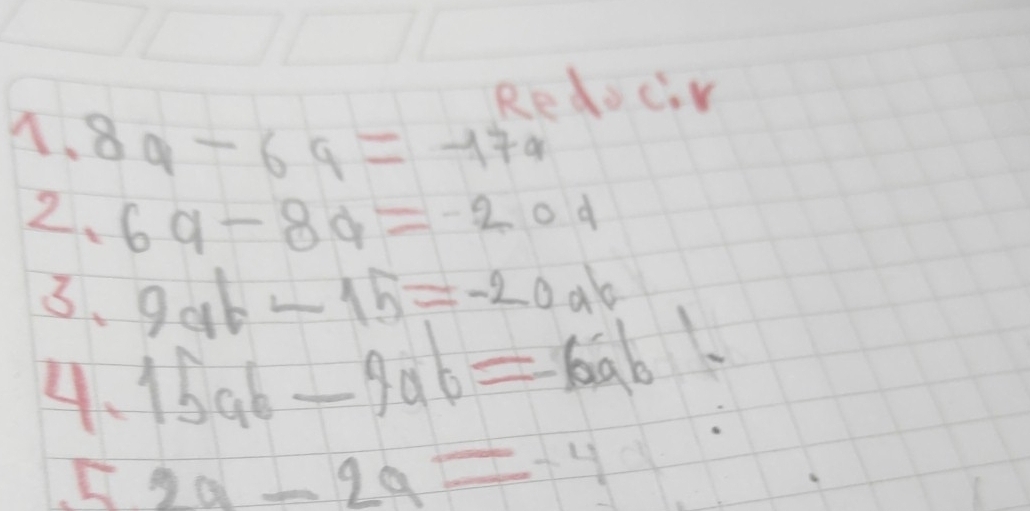 Reducir
1. 8a - 6a = -17a
2. 6a - 8a = -20a
3. 9ab - 15 = -20ab
4. 15ab - 9ab = -6ab
5. 2a - 2a = -4